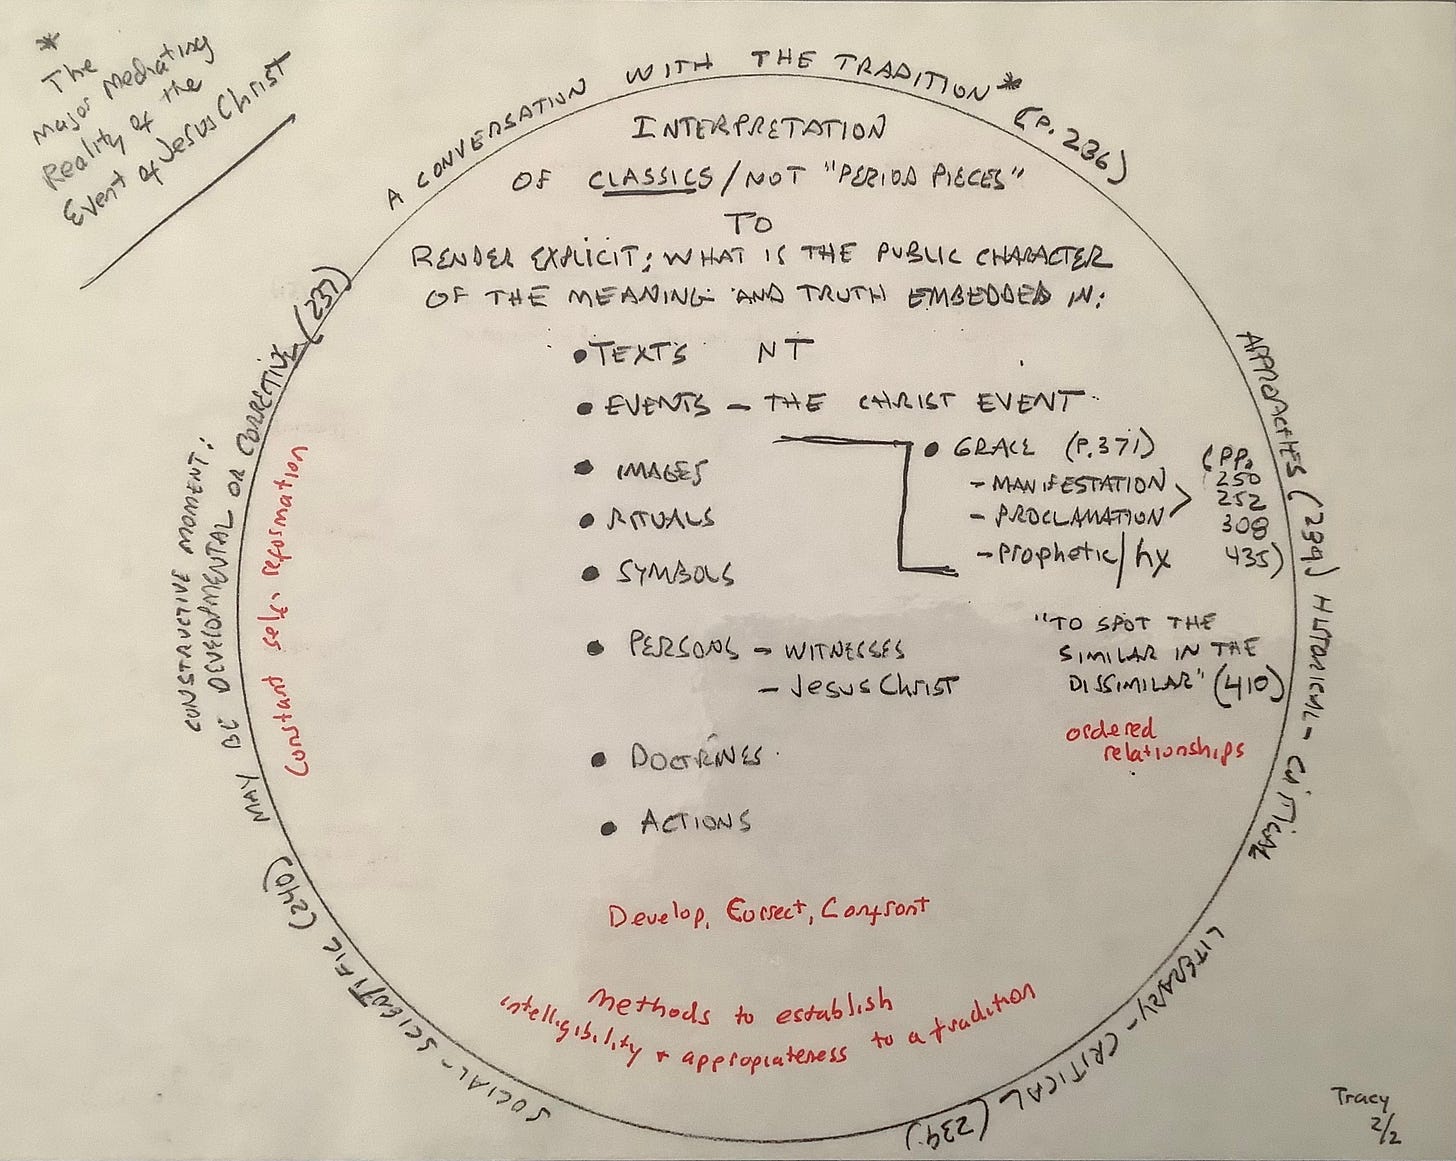 *
The
Major Mediating
Reality of the
Event of Jesus Christ
A CONVERSATION WITH THE TRADITION* (P. 236)
INTERPRETATION
OF CLASSICS/NOT "PERIOD PIECES"
TO
RENDER EXPLICIT: WHAT IS THE PUBLIC CHARACTER
OF THE MEANING AND TRUTH EMBEDDED IN:
• TEXTS NT
• EVENTS – THE CHRIST EVENT
• GRACE (P. 371)
- MANIFESTATION
- PROCLAMATION
- Prophetic/hx
(PP.
250
252
308
435)
• IMAGES
• RITUALS
• SYMBOLS
• PERSONS – WITNESSES
– Jesus Christ
"TO SPOT THE
SIMILAR IN THE
DISSIMILAR" (410)
ordered
relationships
• DOCTRINES
• ACTIONS
Develop, Correct, Confront
methods to establish
intelligibility + appropiateness to a tradition
APPROACHES (239) HISTORICAL-CRITICAL
LITERARY-CRITICAL (239)
SOCIAL-SCIENTIFIC (240)
CONSTRUCTIVE MOMENT:
MAY BE DEVELOPMENTAL OR CORRECTIVE (237)
Constant self-reformation
Tracy
2/2